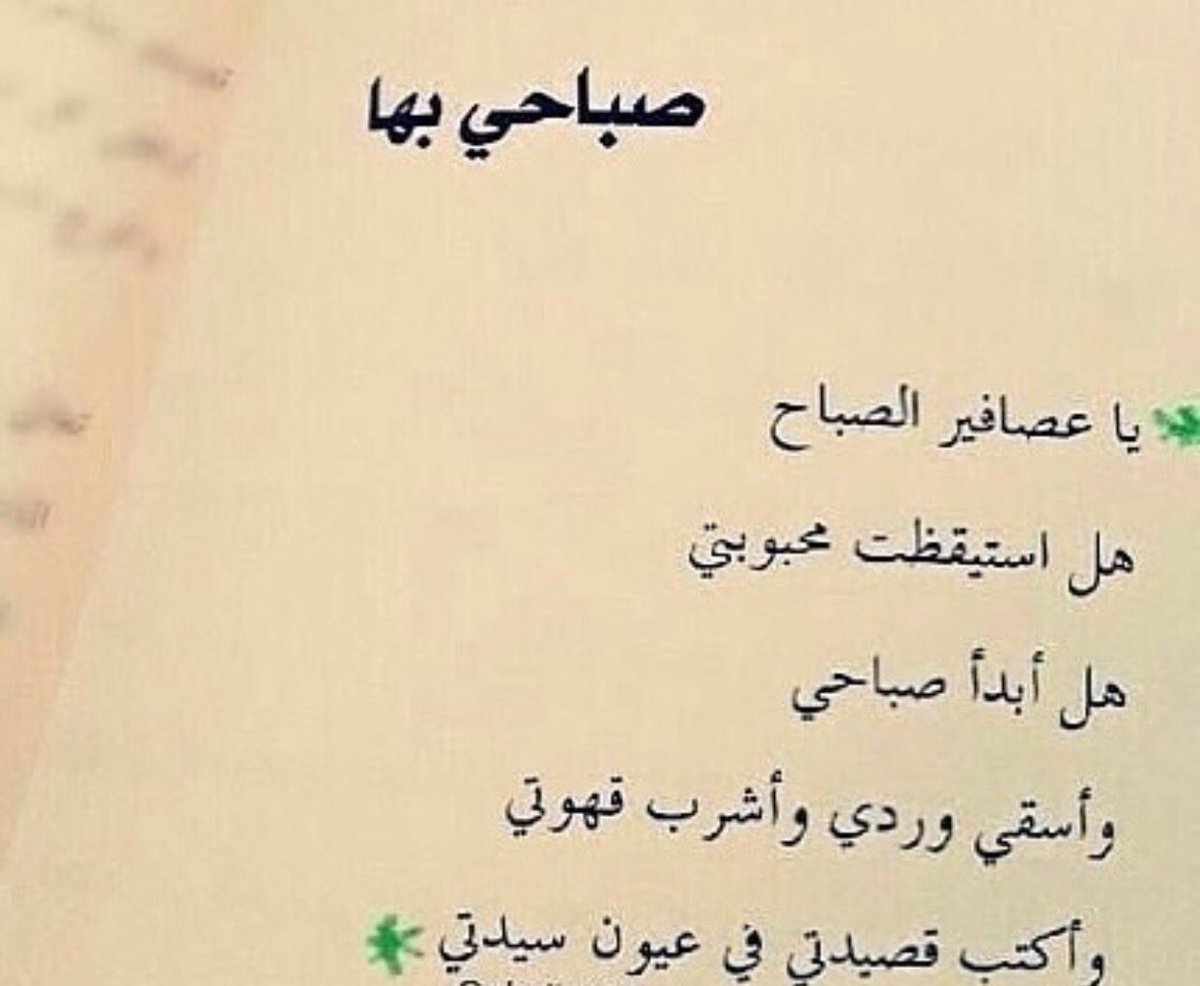 صباحي بها
يا عصافير الصباح
هل استيقظت محبوبتي
هل أبدأ صباحي
وأسقي وردي وأشرب قهوتي
وأكتب قصيدتي في عيون سيدتي